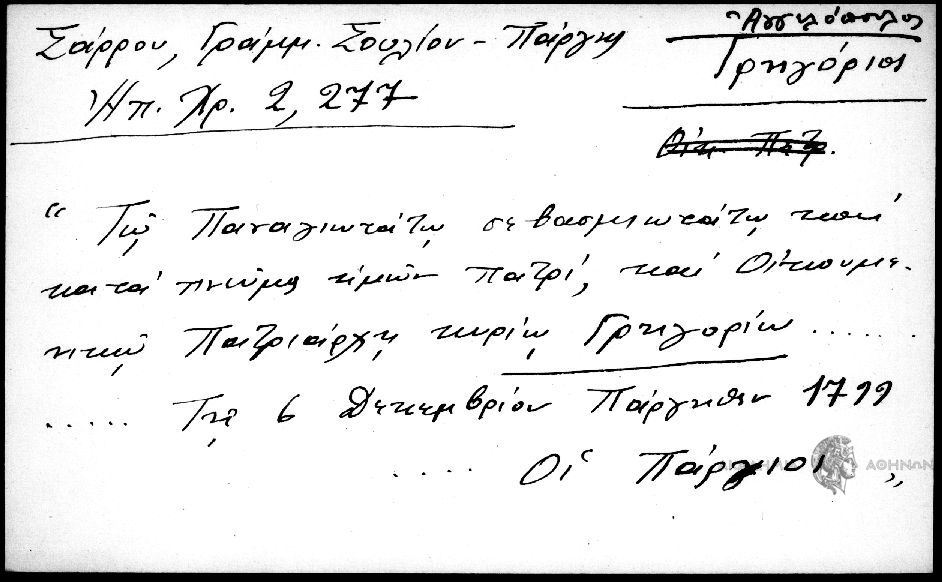 Σάρρου, Γράμμ. Σουλίου - Πάργης
Ἠπ. Χρ. 2, 277
Ἀγγελόπουλος
Γρηγόριος
Οἰκ. Πατρ.
“ Τῷ Παναγιωτάτῳ σεβασμιωτάτῳ καί
κατά πνεῦμα ἡμῶν πατρί, καί Οἰκουμε-
νικῷ Πατριάρχῃ κυρίῳ Γρηγορίῳ ......
..... Τῇ 6 Δεκεμβρίου Πάργηθεν 1799
.... Οἱ Πάργιοι „
ΑΘΗΝΩΝ